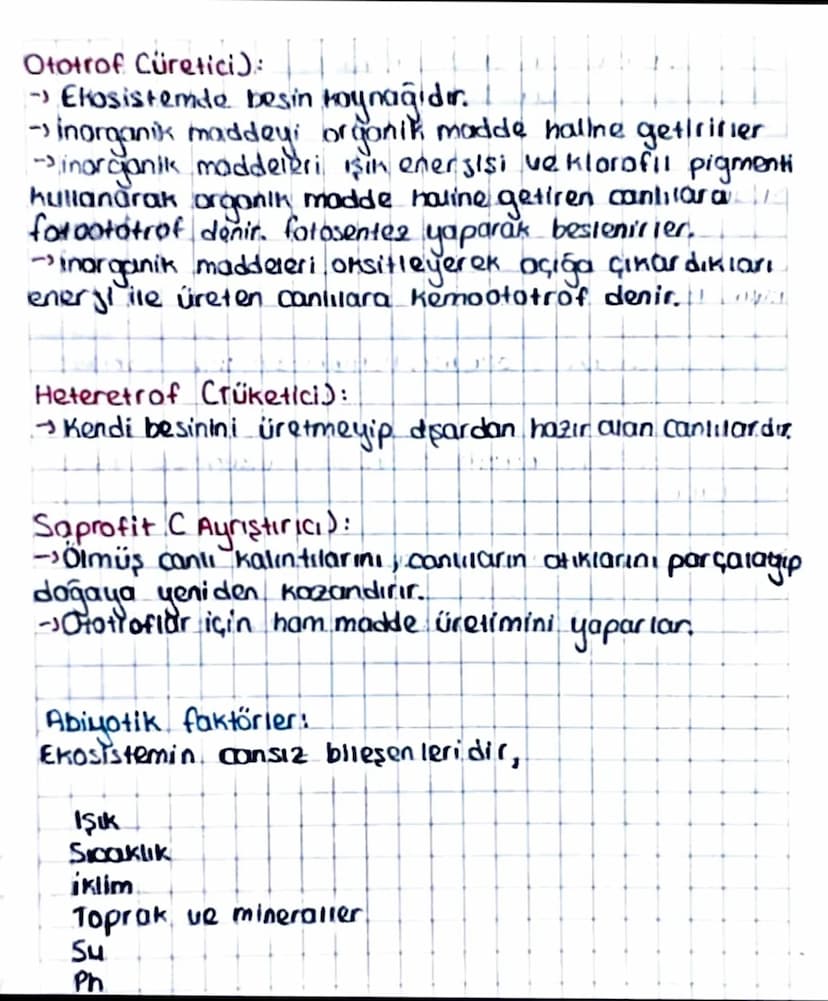 Ototrof (üretici):
→ Ekosistemde besin kaynağıdır.
→ inorganik maddeyi organik madde haline getirirler
→ inorganik maddeleri ışık enerjisi ve klorofil pigmenti
kullanarak organik madde haline getiren canlılara
fotoototrof denir. fotosentez yaparak beslenirler.
→ inorganik maddeleri oksitleyerek açığa çıkardıkları
enerji ile üreten canlılara kemoototrof denir.
Heteretrof (Tüketici):
→ Kendi besinini üretmeyip dışardan hazır alan canlılardır.
Saprofit (Ayrıştırıcı):
→ Ölmüş canlı kalıntılarını, canlıların atıklarını parçalayıp
doğaya yeniden kazandırır.
→ Ototroflar için ham madde üretimini yaparlar.
Abiyotik faktörler:
Ekosistemin cansız bileşenleridir,
Işık
Sıcaklık
iklim
Toprak ve mineraller
Su
Ph